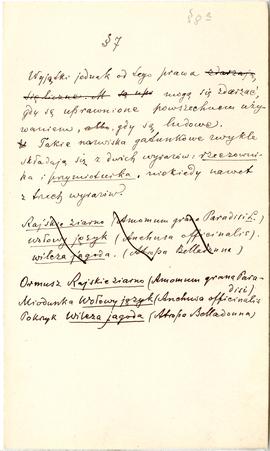 § 8a
§ 7
Wyjątki jednak od tego prawa zdarzają
się liczne. M są ups mogą się zdarzać,
gdy są uprawnione powszechnem uży-
waniem, albo, gdy są ludowe.
Takie nazwiska gatunkowe zwykle
składają się z dwich wyrazów: rzeczowni-
ka i przymiotnika, niekiedy nawet
z trzech wyrazów?
Rajskie ziarno (Amomum grana Paradisi L.)
wołowy język (Anchusa officinalis).
wilcza jagoda. (Atropa Belladonna)
Ormusz Rajskie ziarno (Amomum grana Para-
disi)
Miodunka Wołowy język (Anchusa officinalis
Pokrzyk Wilcza jagoda (Atropa Belladonna)